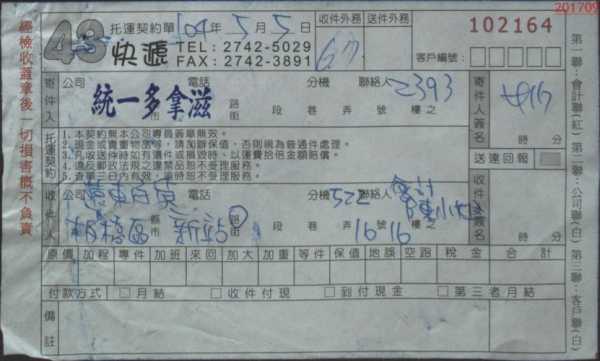 201709
托運契約單 104年5月5日 收件外務 送件外務 102164
43 快遞 TEL: 2742-5029
FAX: 2742-3891 客戶編號:
寄件人 公司 電話 分機 聯絡人 2393 寄件人簽名
統一多拿滋 縣市 路街 段 巷 弄 號 樓之 時 分
託運契約
1.本契約需本公司專員簽章無效。
2.現金或貴重物品等,請加辦保值,否則視為普通件處理。
3.凡收送件時如有遺件或損毀時,以運費拾倍金額賠償。
4.違反郵政法規之違禁品恕不受理服務。
5.查單三日內有效,過時恕不受理服務。
送達回報
收件人 公司 遠東百貨 電話 分機 522 聯絡人 會計 陳小姐 收件簽名
板橋區 縣市 新站 路街 段 巷 弄 16 號 16 樓之 時 分
原價 加程 專件 加班 來回 加大 加重 等件 保值 地誤 空跑 稅金 合計
付款方式 月結 收件付現 到付現金 第三者月結
備註
經檢收蓋章後一切損害概不負責
第一聯:會計聯(紅) 第二聯:公司聯(白) 第三聯:客戶聯(白)